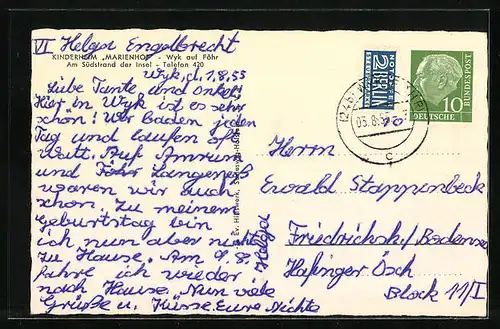 VI Helga Engelbrecht
KINDERHEIM „MARIENHOF" - Wyk auf Föhr
Am Südstrand der Insel - Telefon 420
Wyk, d. 1.8.55
Liebe Tante und Onkel!
Hier in Wyk ist es sehr
schön! Wir baden jeden
Tag und laufen oft
Watt. Auf Amrum
und Föhr Langeneß
waren wir auch
schon. Zu meinem
Geburtstag bin
ich nun aber nicht
zu Hause. Am 9.8.
fahre ich wieder
nach Hause. Nun viele
Grüße u. Küsse Eure Nichte
Helga
NOTOPFER
2
BERLIN
STEUERMARKE
03.8.55
DEUTSCHE
BUNDESPOST
10
Herrn
Ewald Stappenbeck
Friedrichsh./Bodensee
Hofinger Ösch
Block 11/I